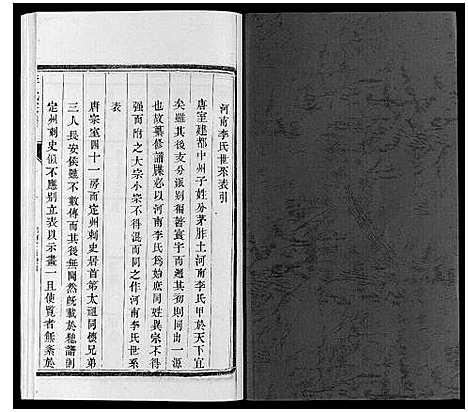 河南李氏世系表引
唐室建都中州子姓分茅胙土河南李氏甲於天下宜
矣雖其後支分派别徧著寰宇而遡其初則同南一源
也故纂修譜牒必以河南李氏為始庶同姓異宗不得
强而附之大宗小宗不得混而同之作河南李氏世系
表
唐宗室四十一房而定州刺史居首第太祖同懷兄弟
三人長安侯雖不數傳而其後無聞然旣載於舊譜則
定州刺史似不應别立表以示畫一且使覽者無紊於